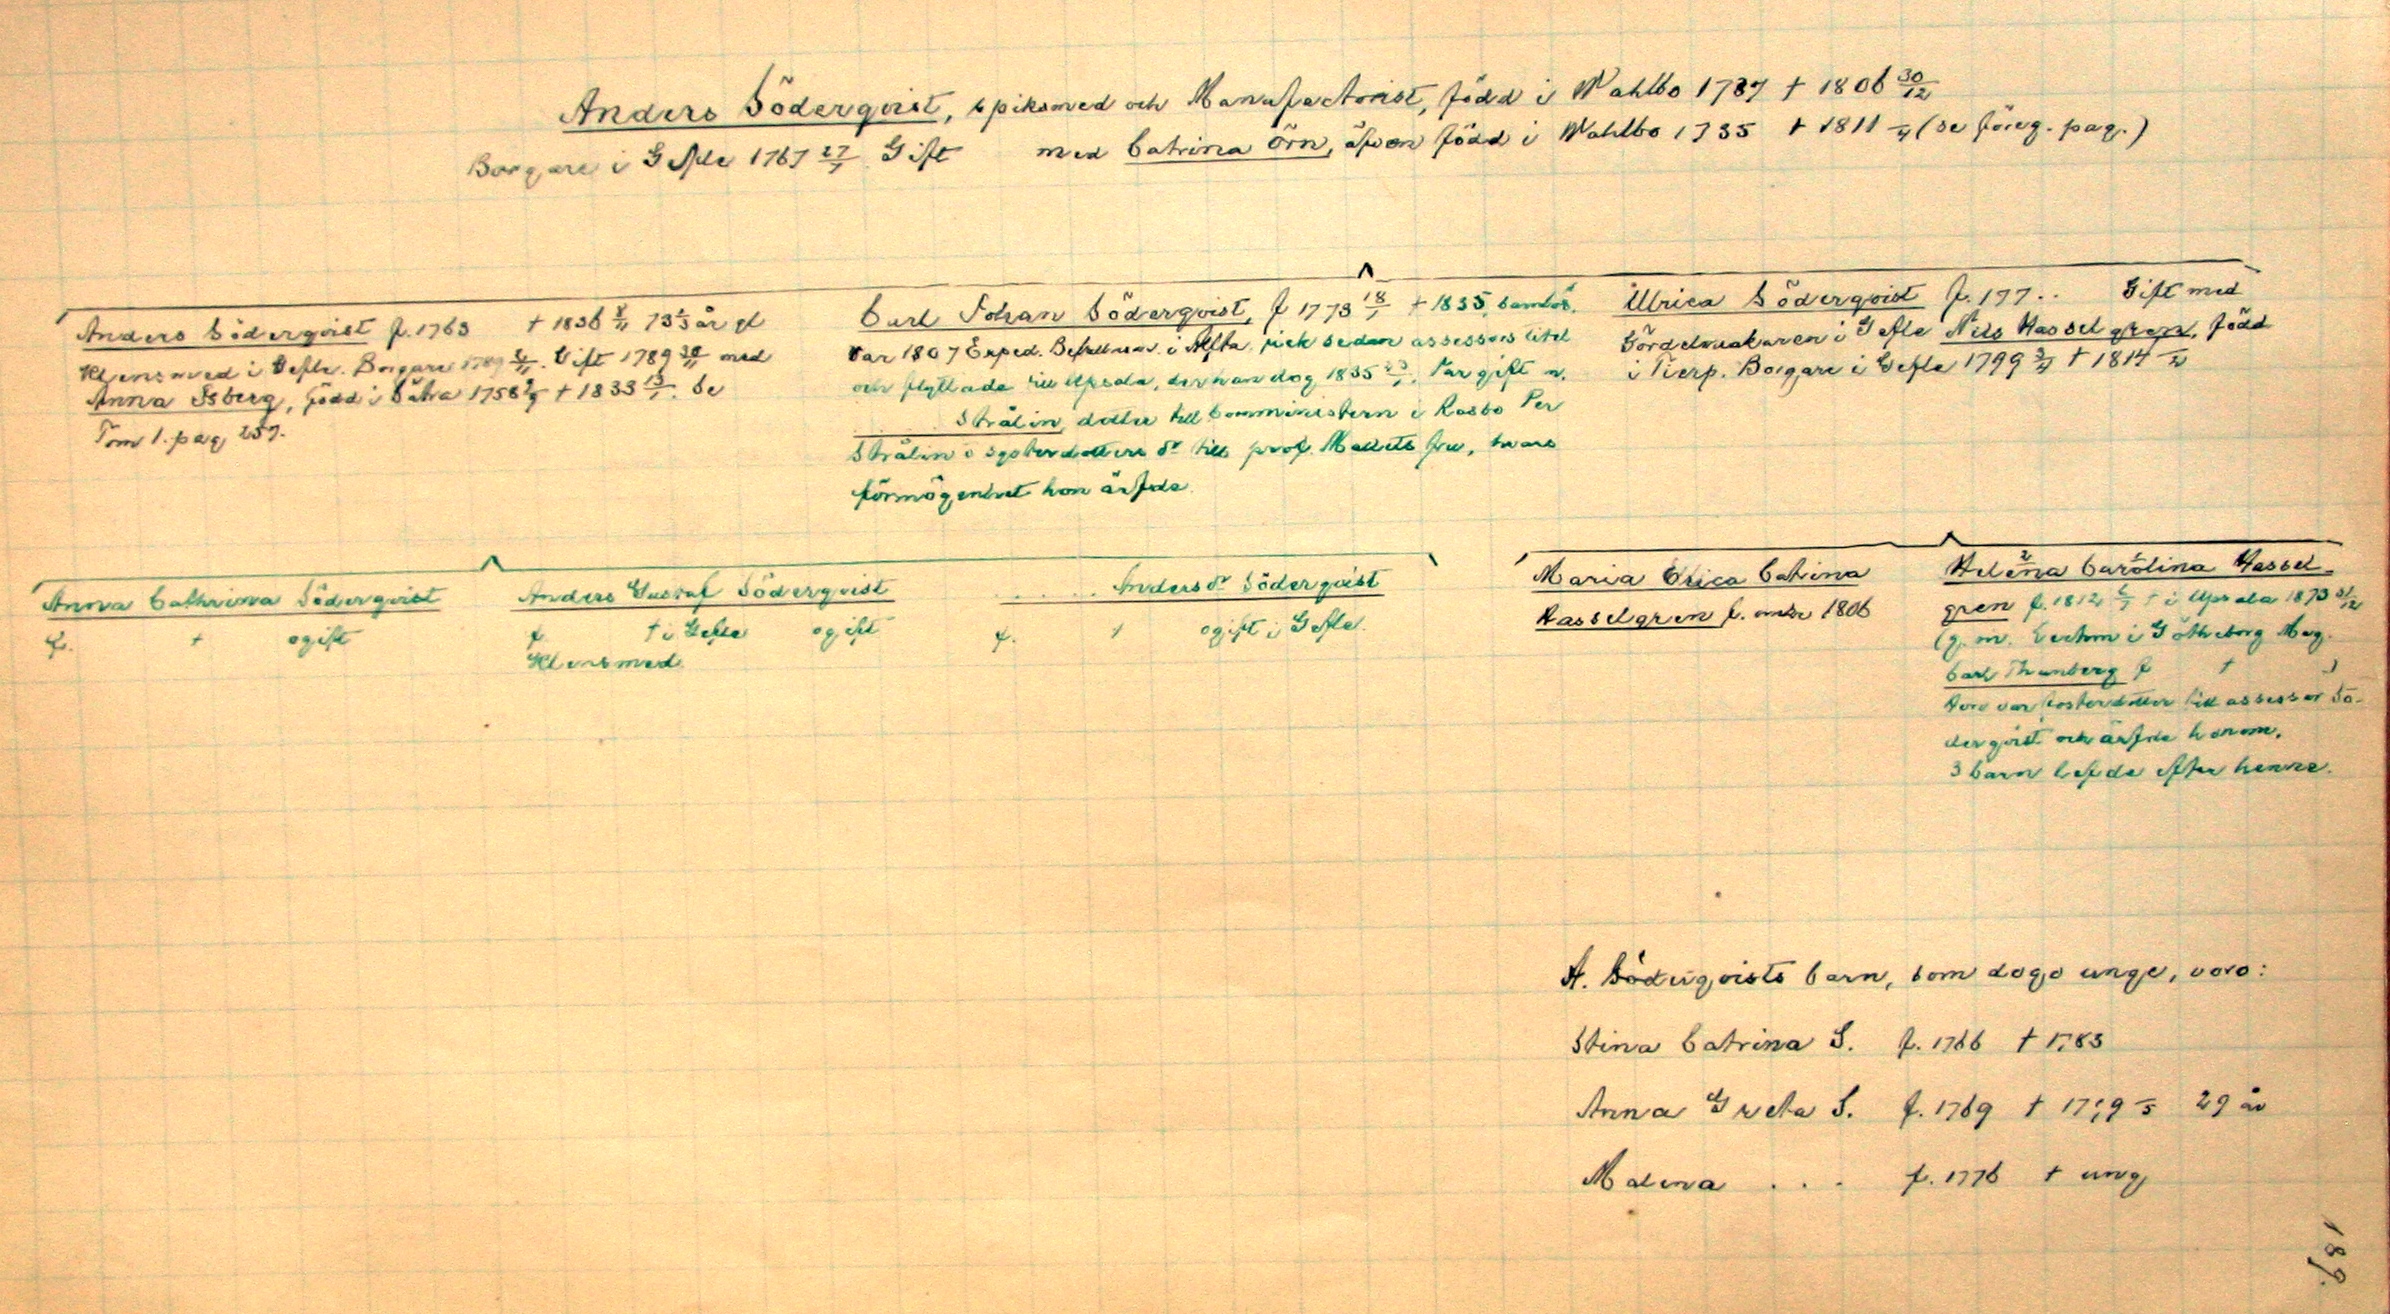 Anders Söderqvist, spiksmed och Manufactorist, född i Wahlbo 1737 † 1806 30/12
Borgare i Gefle 1767 27/7 Gift med Catrina Örn, äfven född i Wahlbo 1735 † 1811 (se föreg. pag.)
Anders Söderqvist f. 1763 † 1836 73 år gl
Klensmed i Gefle. Borgare Gift 1789 med
Anna Isberg, född i Sätra 1758 † 1833 Se
Tom 1. pag. 257.
Carl Johan Söderqvist, f 1773 18/1 † 1835, barnlös.
Var 1807 Exped. Befallnm. i Alfta, fick sedan assessors titel
och flyttade till Upsala, der han dog 1835 Var gift m.
Strålin, dotter till Comministern i Rasbo Per
Strålin o systerdotters dr till prof. Mallets fru, hvars
förmögenhet hon ärfde.
Ulrica Söderqvist f. 177.. Gift med
Gördelmakaren i Gefle Nils Hasselgren, född
i Tierp. Borgare i Gefle 1799 † 1814
Anna Cathrina Söderqvist
f. † ogift
Anders Gustaf Söderqvist
f. † i Gefle ogift
Klensmed
..... Andersdr Söderqvist
f. † ogift i Gefle.
Maria Ulrica Catrina
Hasselgren f. omkr 1806
Helena Carolina Hassel-
gren f. 1812 † i Upsala 1873 31/12
(g. m. Lectorn i Götheborg Mag.
Carl Thunberg f † )
Hon var fosterdotter till assessor Sö-
derqvist och ärfde honom.
3 barn lefde efter henne.
A. Söderqvists barn, som dogo unge, voro:
Stina Catrina S. f. 1766 † 1783
Anna Greta S. f. 1769 † 29 år
Malena . . . f. 1776 † ung
189.